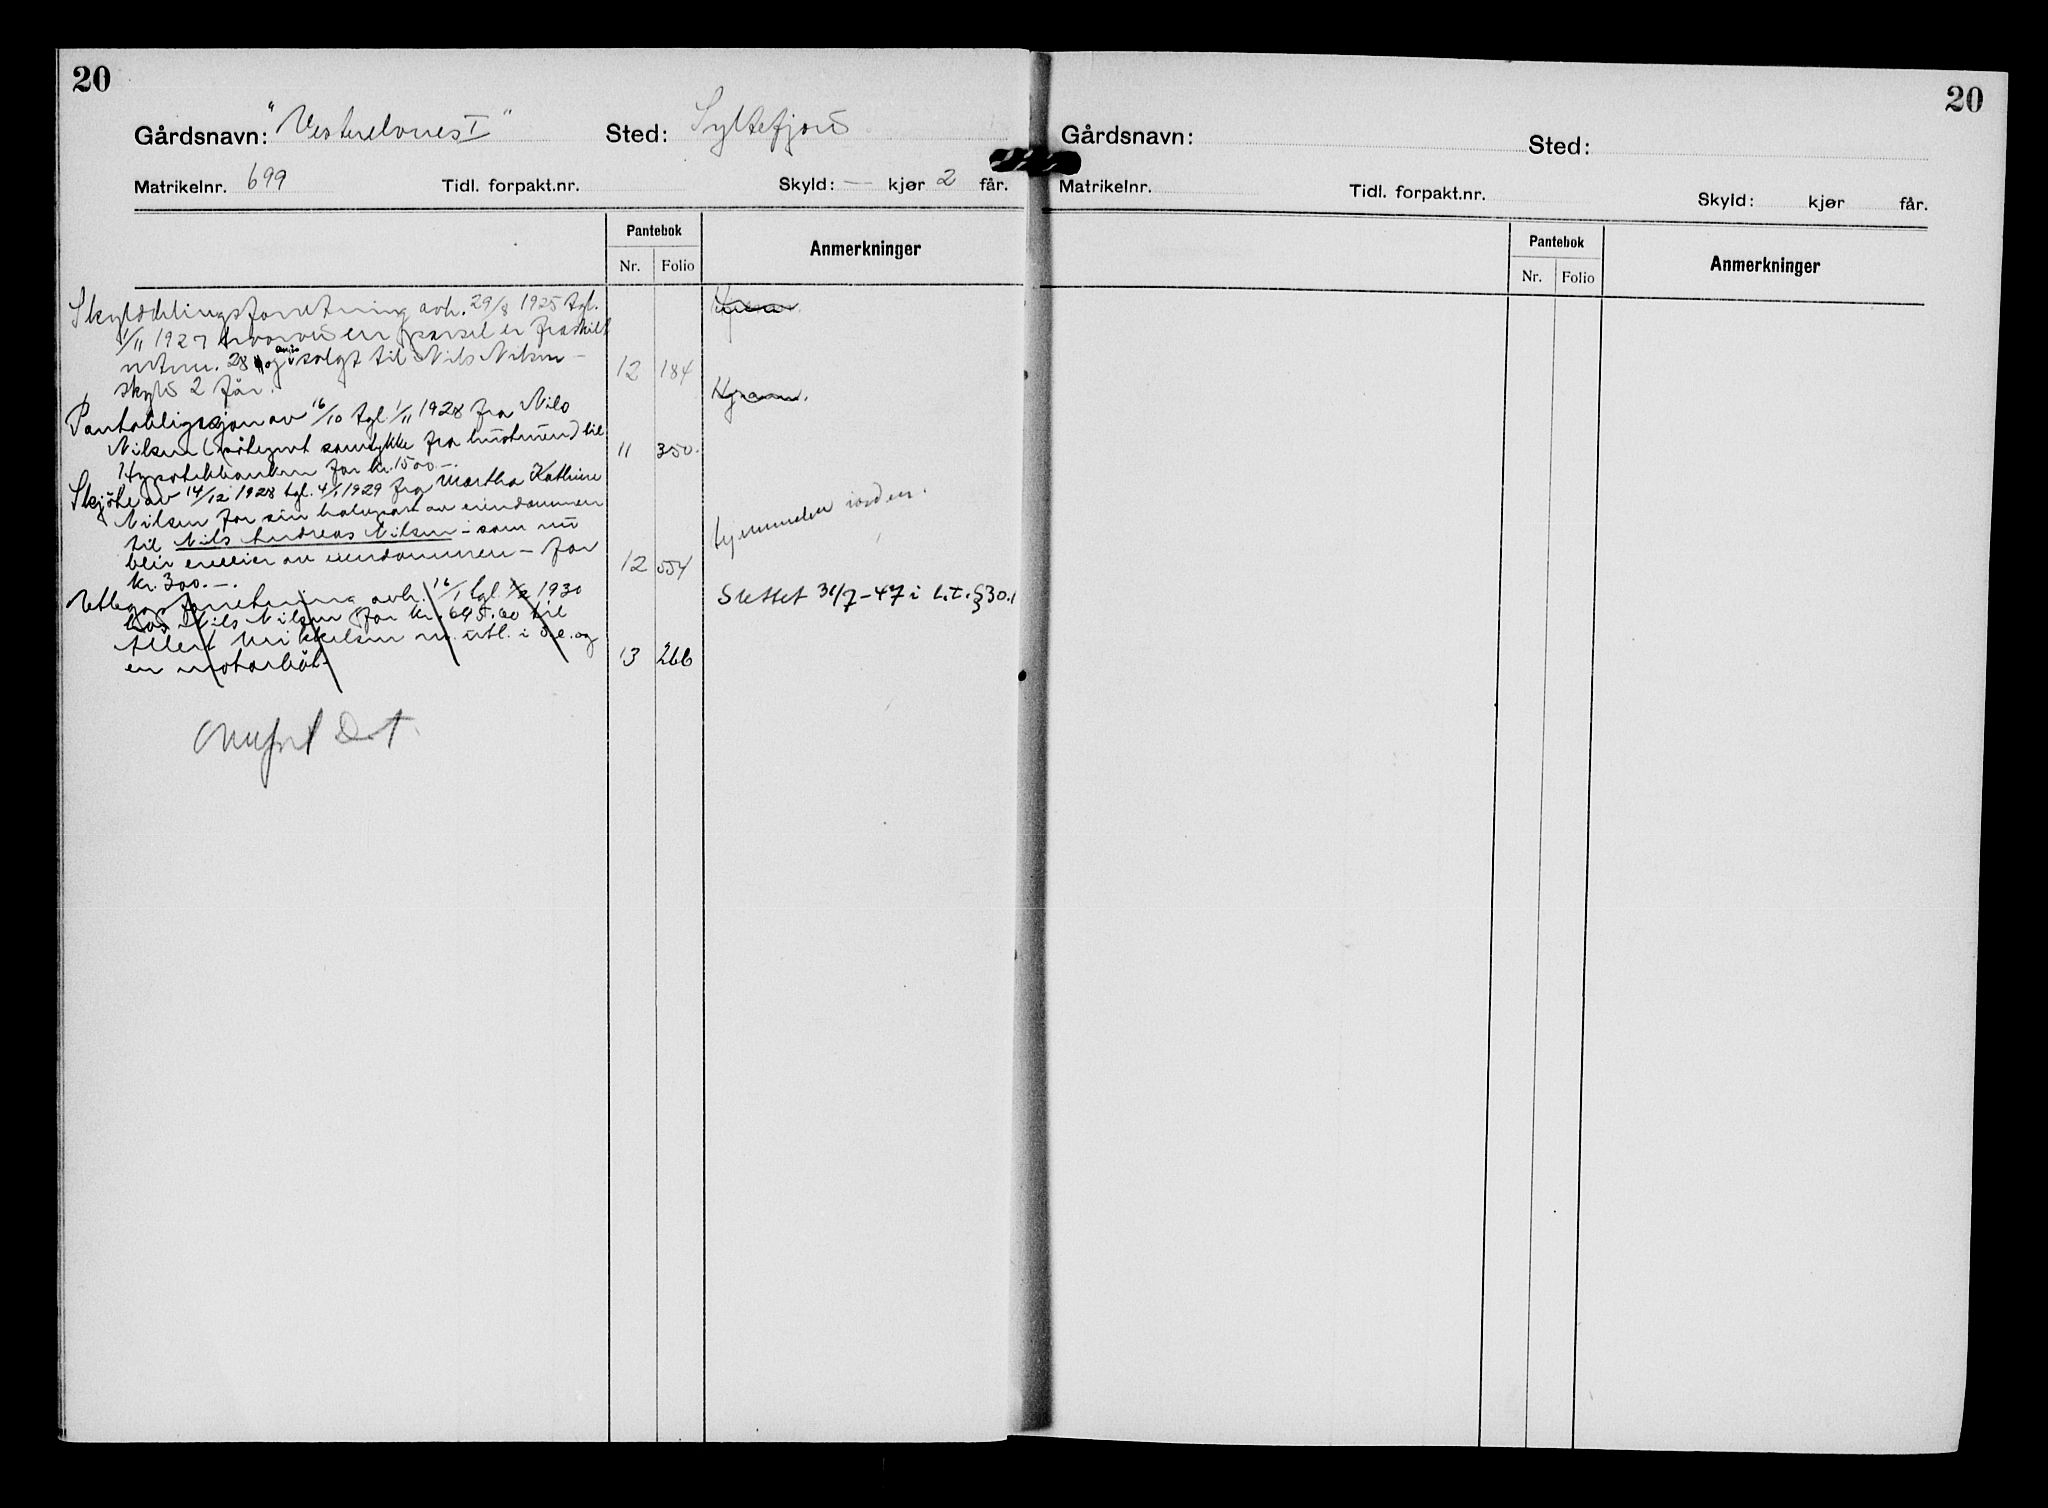 20
Gårdsnavn: "Vestrelvnes I" Sted: Syltefjord
Matrikelnr. 699 Tidl. forpakt.nr. Skyld: — kjør 2 får.
Pantebok
Anmerkninger
Nr. Folio
Skylddelingsforretning avh. 29/8 1925 tgl.
1/11 1927 hvorved en parsel er fraskilt
mtrnr. 28 og solgt til Nils Nilsen –
skyld 2 får. 12 184
Pantobligasjon av 16/10 tgl 1/11 1928 fra Nils
Nilsen (påtegnt samtykke fra hustruen) til
Hypotekbanken for kr. 1500.–. 11 350.
Skjöte av 14/12 1928 tgl. 4/1 1929 fra Martha Kathrine
Nilsen for sin halvpart av eiendommen
til Nils Andreas Nilsen – som nu
blir eneeier av eiendommen – for
kr. 300.–. 12 554
Hjemmelen iorden.
Utlegsforretning avh. 16/1 tgl. 1/2 1930
hos Nils Nilsen for kr. 695.60 til
Allert Mikkelsen m. utl. i d.e. og
en motorbåt. 13 266
Slettet 31/7-47 i L.T. §30.1
20
Gårdsnavn: Sted:
Matrikelnr. Tidl. forpakt.nr. Skyld: kjør får.
Pantebok
Anmerkninger
Nr. Folio